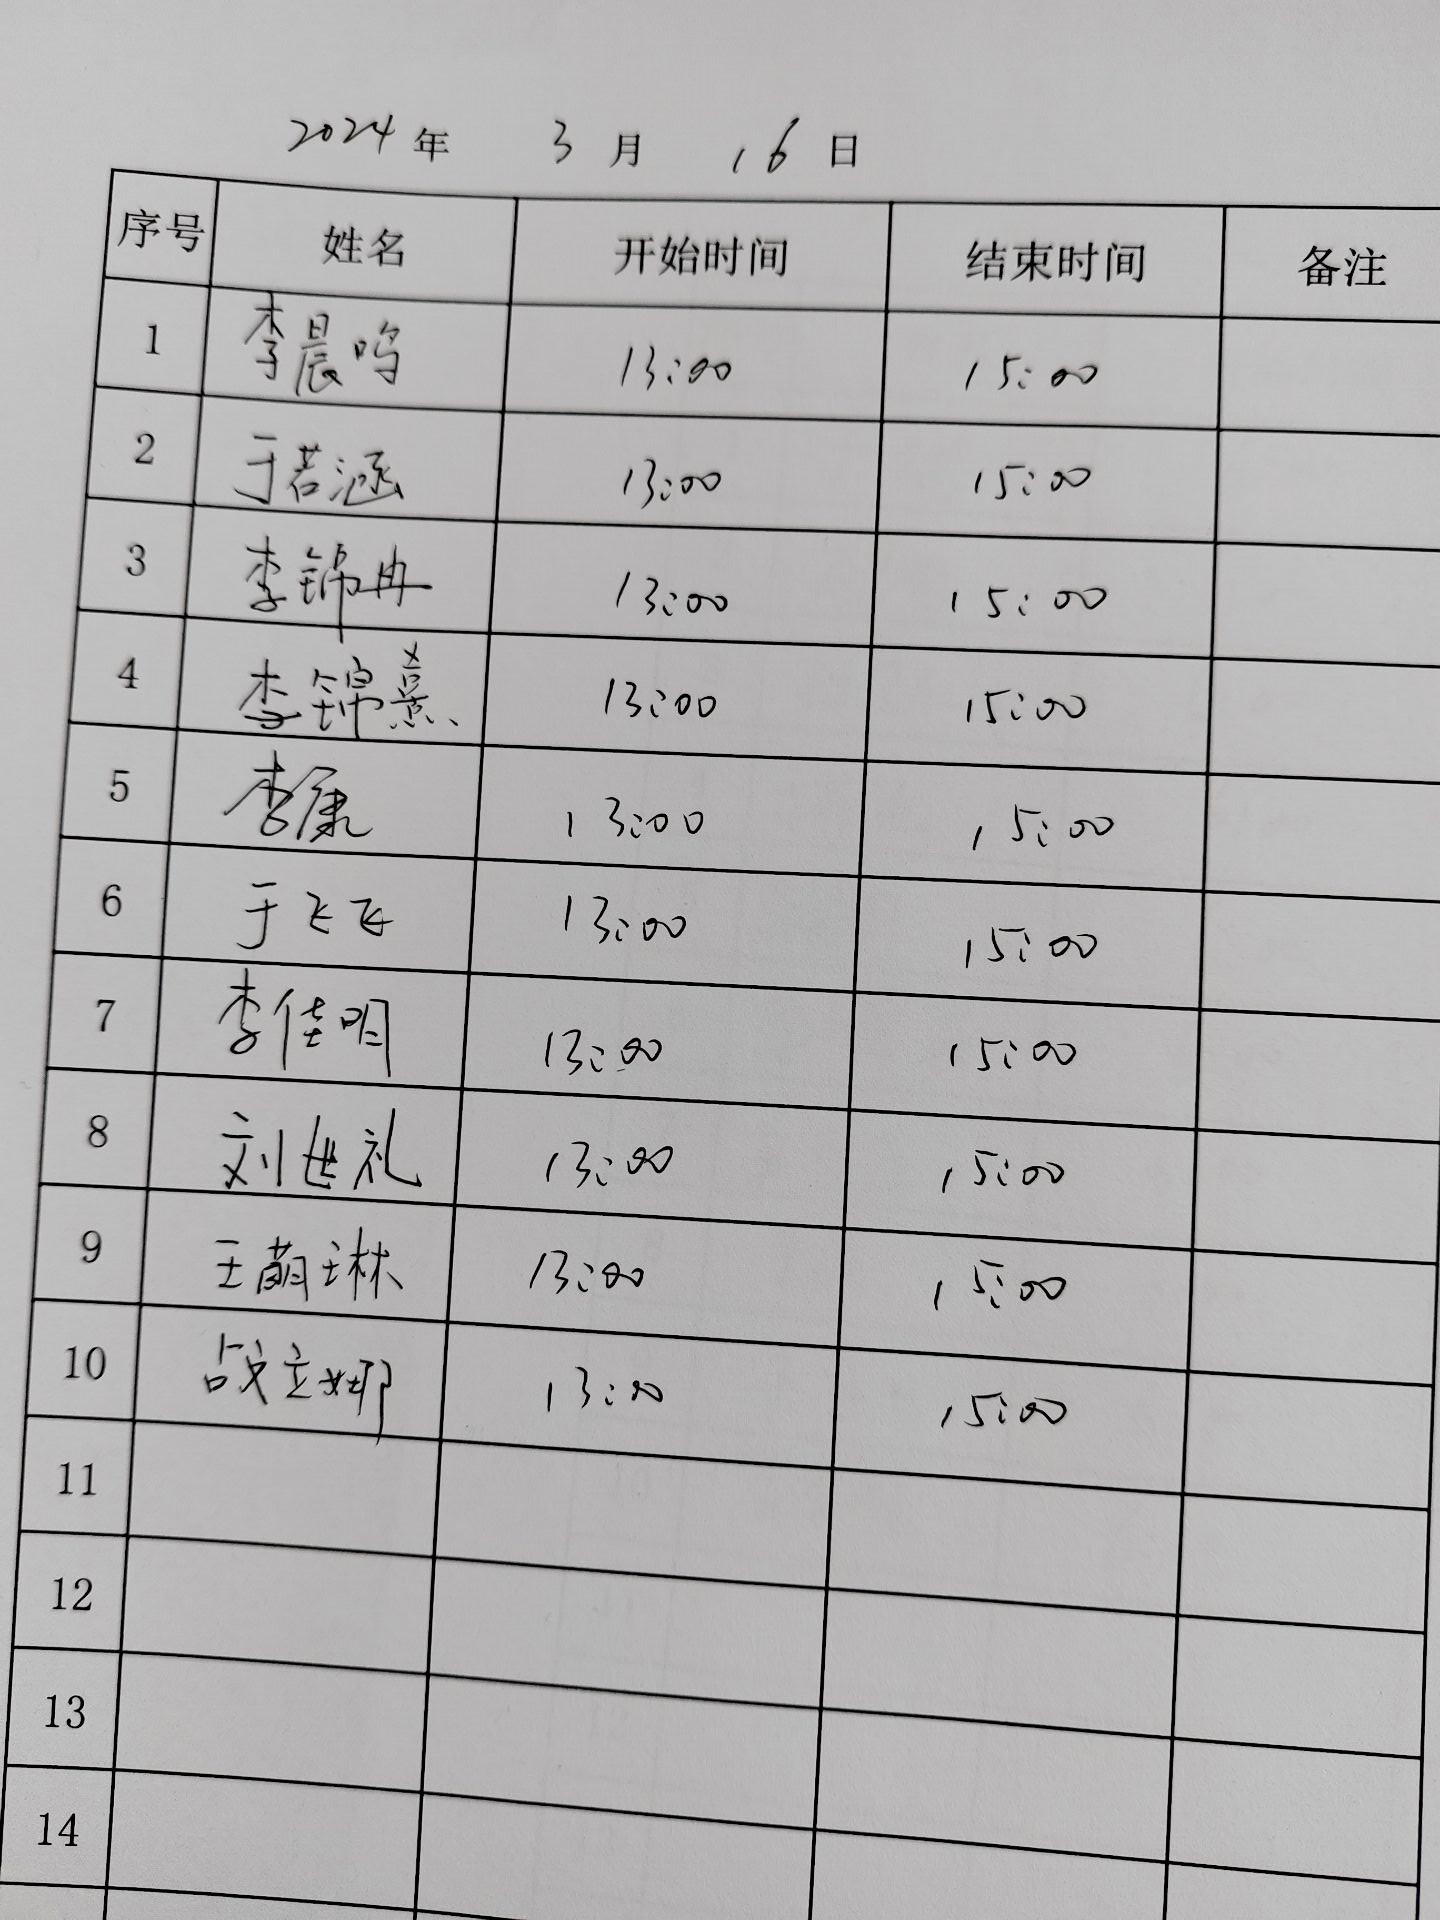 2024年 3月 16日
序号 姓名 开始时间 结束时间 备注
1 李晨鸣 13:00 15:00
2 于若涵 13:00 15:00
3 李锦冉 13:00 15:00
4 李锦熹 13:00 15:00
5 李康 13:00 15:00
6 于飞飞 13:00 15:00
7 李佳明 13:00 15:00
8 刘世礼 13:00 15:00
9 王萌琳 13:00 15:00
10 战立娜 13:00 15:00
11
12
13
14